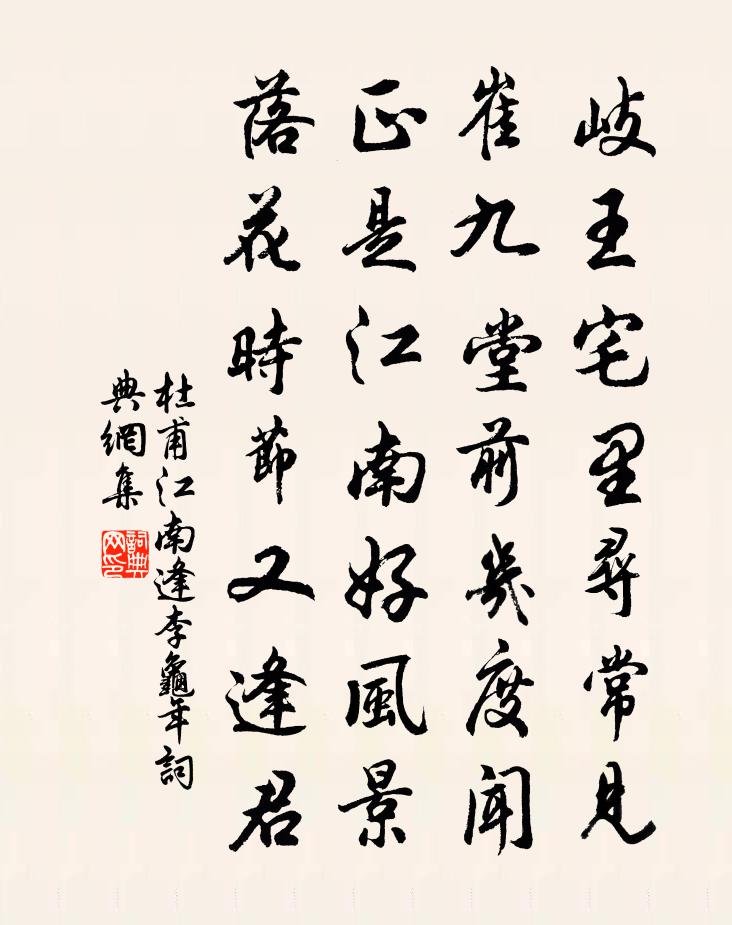 岐王宅里尋常見
崔九堂前幾度聞
正是江南好風景
落花時節又逢君
杜甫江南逢李龜年詞
典網集
詞典网印